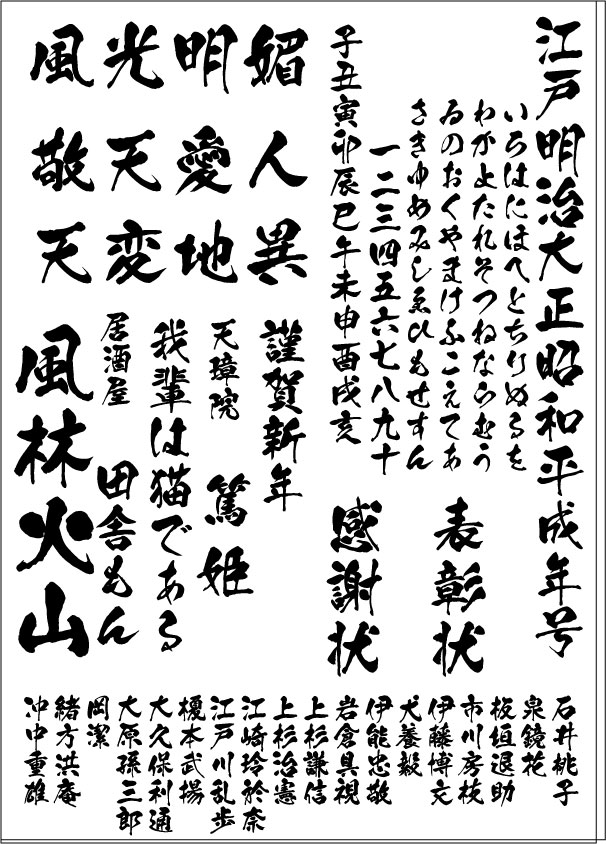 江戸明治大正昭和平成年号
いろはにほへとちりぬるを
わかよたれそつねならむう
ゐのおくやまけふこえてあ
さきゆめみしゑひもせすん
一二三四五六七八九十
子丑寅卯辰巳午未申酉戌亥
表彰状
感謝状
風光明媚
敬天愛人
天変地異
謹賀新年
天璋院 篤姫
我輩は猫である
居酒屋 田舎もん
風林火山
石井桃子
泉鏡花
板垣退助
市川房枝
伊藤博文
犬養毅
伊能忠敬
岩倉具視
上杉謙信
上杉治憲
江崎玲於奈
江戸川乱歩
榎本武揚
大久保利通
大原孫三郎
岡潔
緒方洪庵
沖中重雄